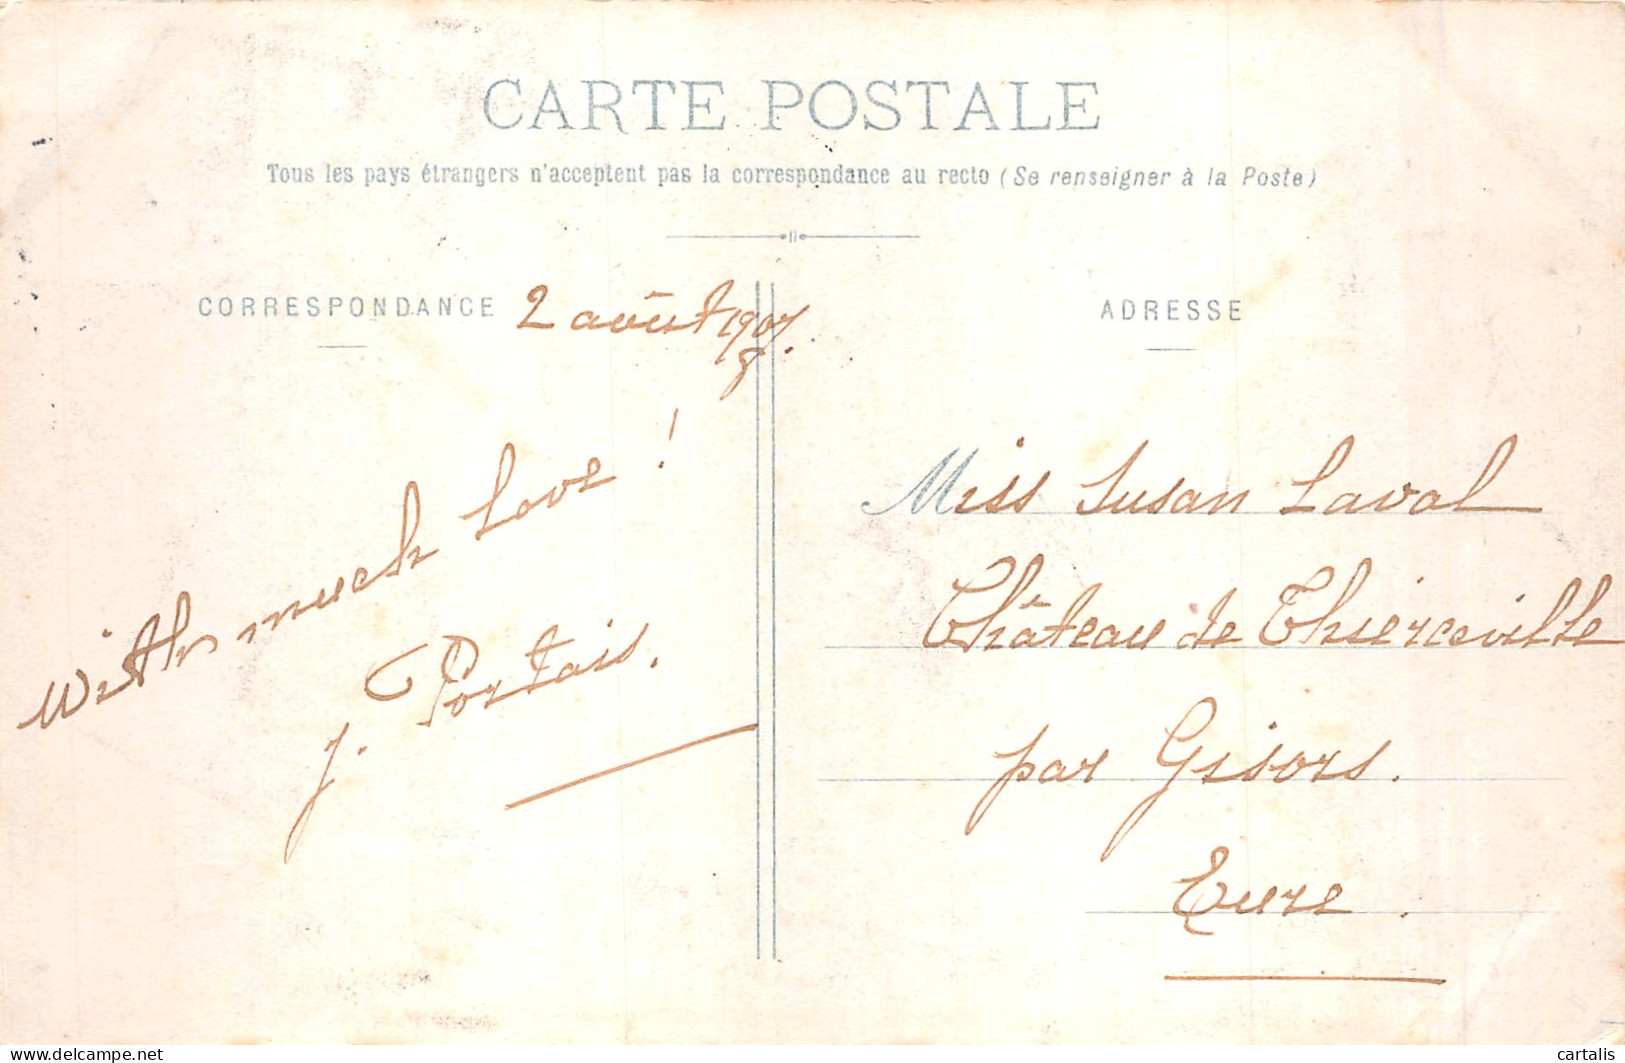 CARTE POSTALE
Tous les pays étrangers n'acceptent pas la correspondance au recto (Se renseigner à la Poste)
CORRESPONDANCE
2 août 1907.
8
With much love!
J. Portais.
ADRESSE
Miss Susan Laval
Château de Thierceville
par Gisors.
Eure.
delcampe.net
cartalis